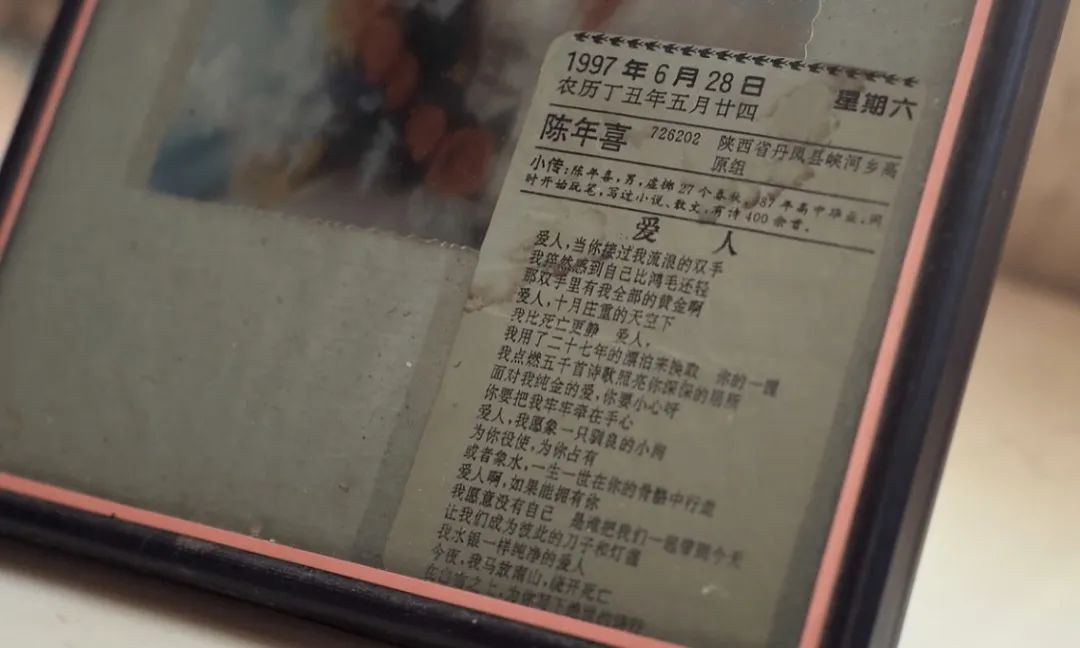 1997年6月28日 星期六
农历丁丑年五月廿四
陈年喜 726202 陕西省丹凤县峡河乡高
原组
小传:陈年喜,男,虚掷27个春秋,87年高中毕业,同
时开始玩笔,写过小说、散文,有诗400余首。
爱 人
爱人,当你接过我流浪的双手
我猝然感到自己比鸿毛还轻
那双手里有我全部的黄金啊
爱人,十月庄重的天空下
我比死亡更静 爱人,
我用了二十七年的漂泊来换取 你的一握
我点燃五千首诗歌照亮你深深的居所
面对我纯金的爱,你要小心呀
你要把我牢牢牵在手心
爱人,我愿象一只驯良的小狗
为你役使,为你占有
或者象水,一生一世在你的骨骼中行走
爱人啊,如果能拥有你
我愿意没有自己 是谁把我们一起带到今天
让我们成为彼此的刀子和灯盏
我水银一样纯净的爱人
今夜,我马放南山,绕开死亡
在 之上,为你写下 的诗行